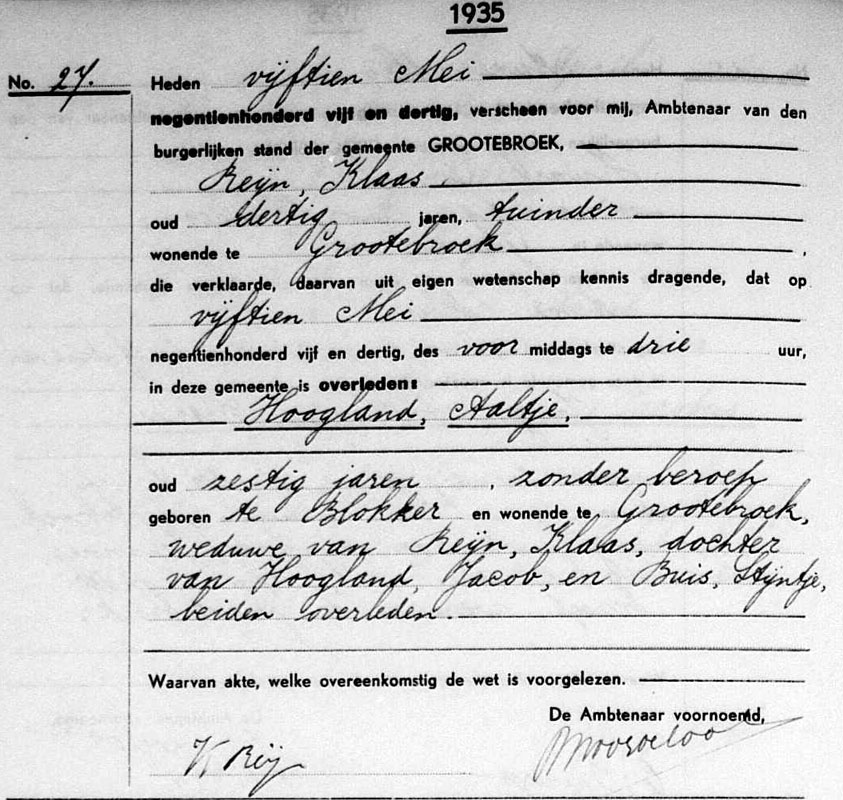 1935
No. 27. Heden vijftien Mei
negentienhonderd vijf en dertig, verscheen voor mij, Ambtenaar van den
burgerlijken stand der gemeente GROOTEBROEK,
Reijn, Klaas
oud dertig jaren, tuinder
wonende te Grootebroek,
die verklaarde, daarvan uit eigen wetenschap kennis dragende, dat op
vijftien Mei
negentienhonderd vijf en dertig, des voor middags te drie uur,
in deze gemeente is overleden:
Hoogland, Aaltje,
oud zestig jaren, zonder beroep
geboren te Blokker en wonende te Grootebroek,
weduwe van Reijn, Klaas, dochter
van Hoogland, Jacob, en Buis, Stijntje,
beiden overleden.
Waarvan akte, welke overeenkomstig de wet is voorgelezen.
De Ambtenaar voornoemd,
K Reij